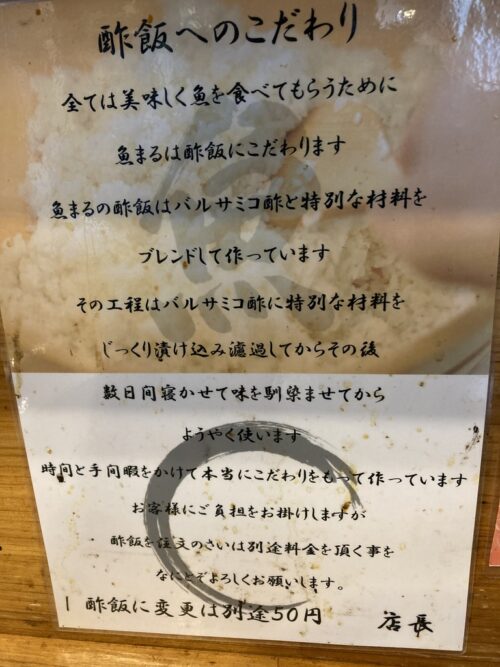 酢飯へのこだわり
全ては美味しく魚を食べてもらうために
魚まるは酢飯にこだわります
魚まるの酢飯はバルサミコ酢と特別な材料を
ブレンドして作っています
その工程はバルサミコ酢に特別な材料を
じっくり漬け込み濾過してからその後
数日間寝かせて味を馴染ませてから
ようやく使います
時間と手間暇をかけて本当にこだわりをもって作っています
お客様にご負担をお掛けしますが
酢飯を注文のさいは別途料金を頂く事を
なにとぞよろしくお願いします。
酢飯に変更は別途50円
店長
魚